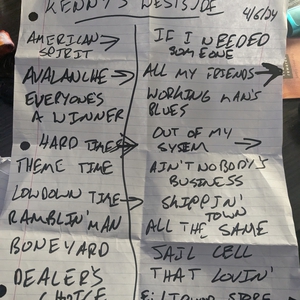 KENNY'S WESTSIDE
4/6/24
AMERICAN →
SPIRIT
AVALANCHE →
EVERYONE'S
A WINNER
HARD TIMES →
THEME TIME
LOWDOWN TIME →
RAMBLIN' MAN
BONEYARD
DEALER'S
CHOICE
IF I NEEDED
SOMEONE
ALL MY FRIENDS →
WORKING MAN'S
BLUES
OUT OF MY
SYSTEM →
AIN'T NOBODY'S
BUSINESS
SKIPPIN'
TOWN
ALL THE SAME
JAIL CELL
THAT LOVIN'
LIQUOR STORE